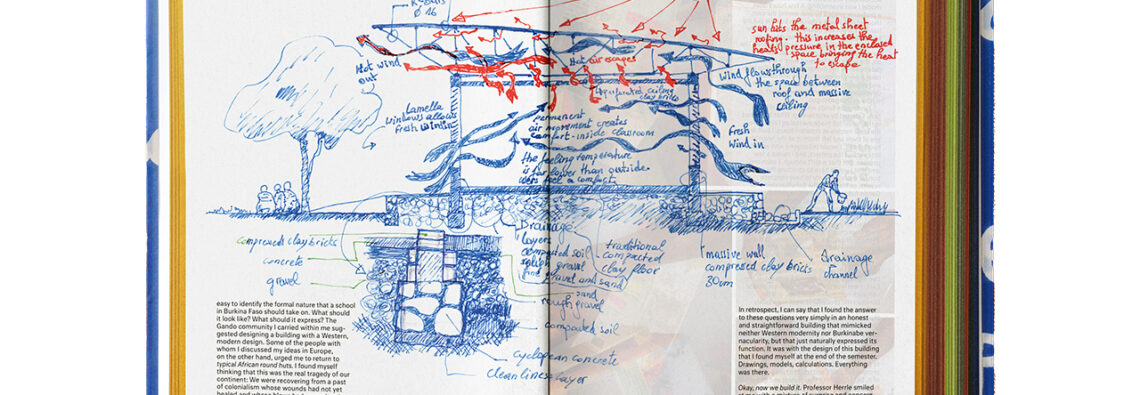 Ø 16
sun hits the metal sheet
roofing. this increases the
heats pressure in the enclosed
space bringing the heat
to escape
Hot wind
out
Hot air escapes
Wind flows through
the space between
roof and massive
ceiling
ceiling
clay bricks
Lamella
windows allows
fresh
permanent
air movement creates
comfort inside classroom
Fresh
wind in
the feeling temperature
is far lower than outside.
compressed clay bricks
concrete
gravel
Drainage
layers
compacted soil
gravel
gravel and sand
sand
rough gravel
traditional
compacted
clay floor
massive wall
compressed clay bricks
30cm
Drainage
channel
compacted soil
cyclopean concrete
cleanliness layer
easy to identify the formal nature that a school
in Burkina Faso should take on. What should
it look like? What should it express? The
Gando community I carried within me sug-
gested designing a building with a Western,
modern design. Some of the people with
whom I discussed my ideas in Europe,
on the other hand, urged me to return to
typical African round huts. I found myself
thinking that this was the real tragedy of our
continent: We were recovering from a past
of colonialism whose wounds had not yet
healed and whose
In retrospect, I can say that I found the answer
to these questions very simply in an honest
and straightforward building that mimicked
neither Western modernity nor Burkinabe ver-
nacularity, but that just naturally expressed its
function. It was with the design of this building
that I found myself at the end of the semester.
Drawings, models, calculations. Everything
was there.
Okay, now we build it. Professor Herrle smiled
at me with a mixture of surprise and concern